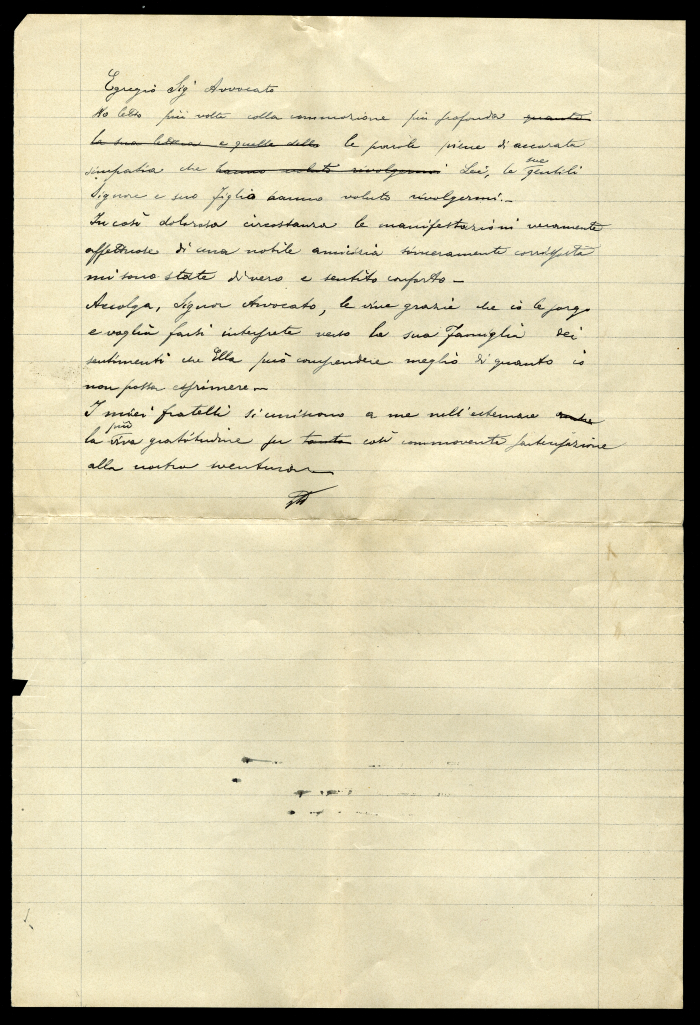 Egregio Sig Avvocato
Ho letto più volte colla commozione più profonda quanto
la sua lettera e quelle dello le parole piene di accorata
simpatia che hanno voluto rivolgermi Lei, le sue gentili
Signore e suo figlio hanno voluto rivolgermi. —
In così dolorosa circostanza le manifestazioni veramente
affettuose di una nobile amicizia sinceramente corrisposta
mi sono state di vero e sentito conforto —
Accolga, Signor Avvocato, le vive grazie che io le porgo
e voglia farsi interprete verso la sua Famiglia dei
sentimenti che Ella può comprendere meglio di quanto io
non possa esprimere —
I miei fratelli si uniscono a me nell'esternare
la più viva gratitudine per tanto così commovente partecipazione
alla nostra sventura —